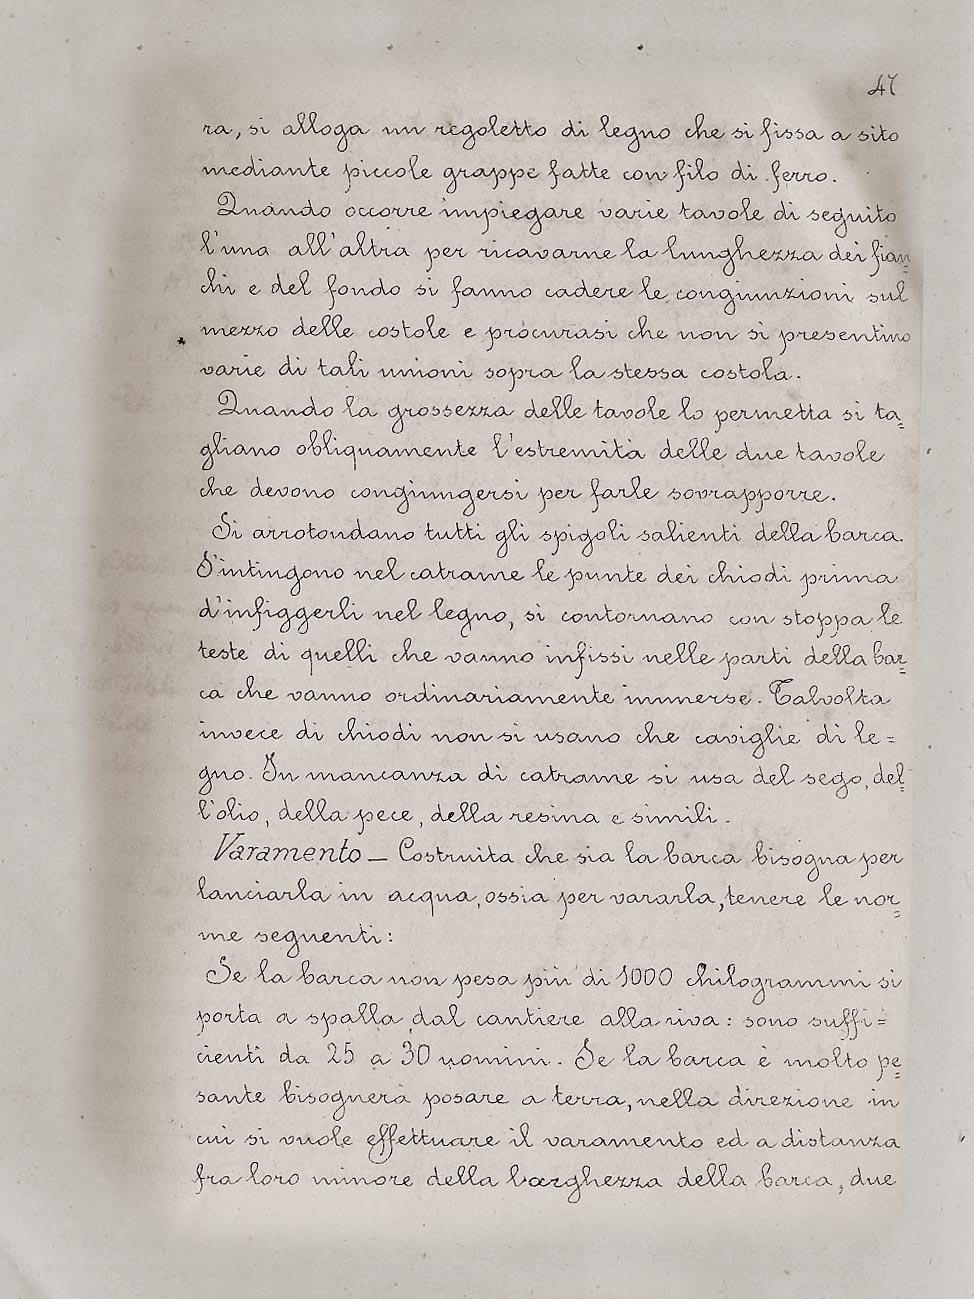 47
ra, si alloga un regoletto di legno che si fissa a sito
mediante piccole grappe fatte con filo di ferro.
Quando occorre impiegare varie tavole di seguito
l'una all'altra per ricavarne la lunghezza dei fian=
chi e del fondo si fanno cadere le congiunzioni sul
mezzo delle costole e procurasi che non si presentino
varie di tali unioni sopra la stessa costola.
Quando la grossezza delle tavole lo permetta si ta=
gliano obliquamente l'estremità delle due tavole
che devono congiungersi per farle sovrapporre.
Si arrotondano tutti gli spigoli salienti della barca.
S'intingono nel catrame le punte dei chiodi prima
d'infiggerli nel legno, si contornano con stoppa le
teste di quelli che vanno infissi nelle parti della bar=
ca che vanno ordinariamente immerse. Talvolta
invece di chiodi non si usano che caviglie di le=
gno. In mancanza di catrame si usa del sego, del=
l'olio, della pece, della resina e simili.
Varamento - Costruita che sia la barca bisogna per
lanciarla in acqua, ossia per vararla, tenere le nor=
me seguenti:
Se la barca non pesa più di 1000 chilogrammi si
porta a spalla dal cantiere alla riva: sono suffi=
cienti da 25 a 30 uomini. Se la barca è molto pe=
sante bisognerà posare a terra, nella direzione in
cui si vuole effettuare il varamento ed a distanza
fra loro minore della larghezza della barca, due